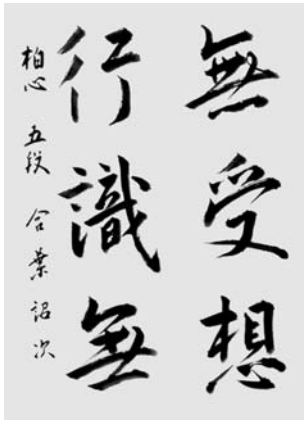 無受想
行識無
柏心 五段 合葉詔次